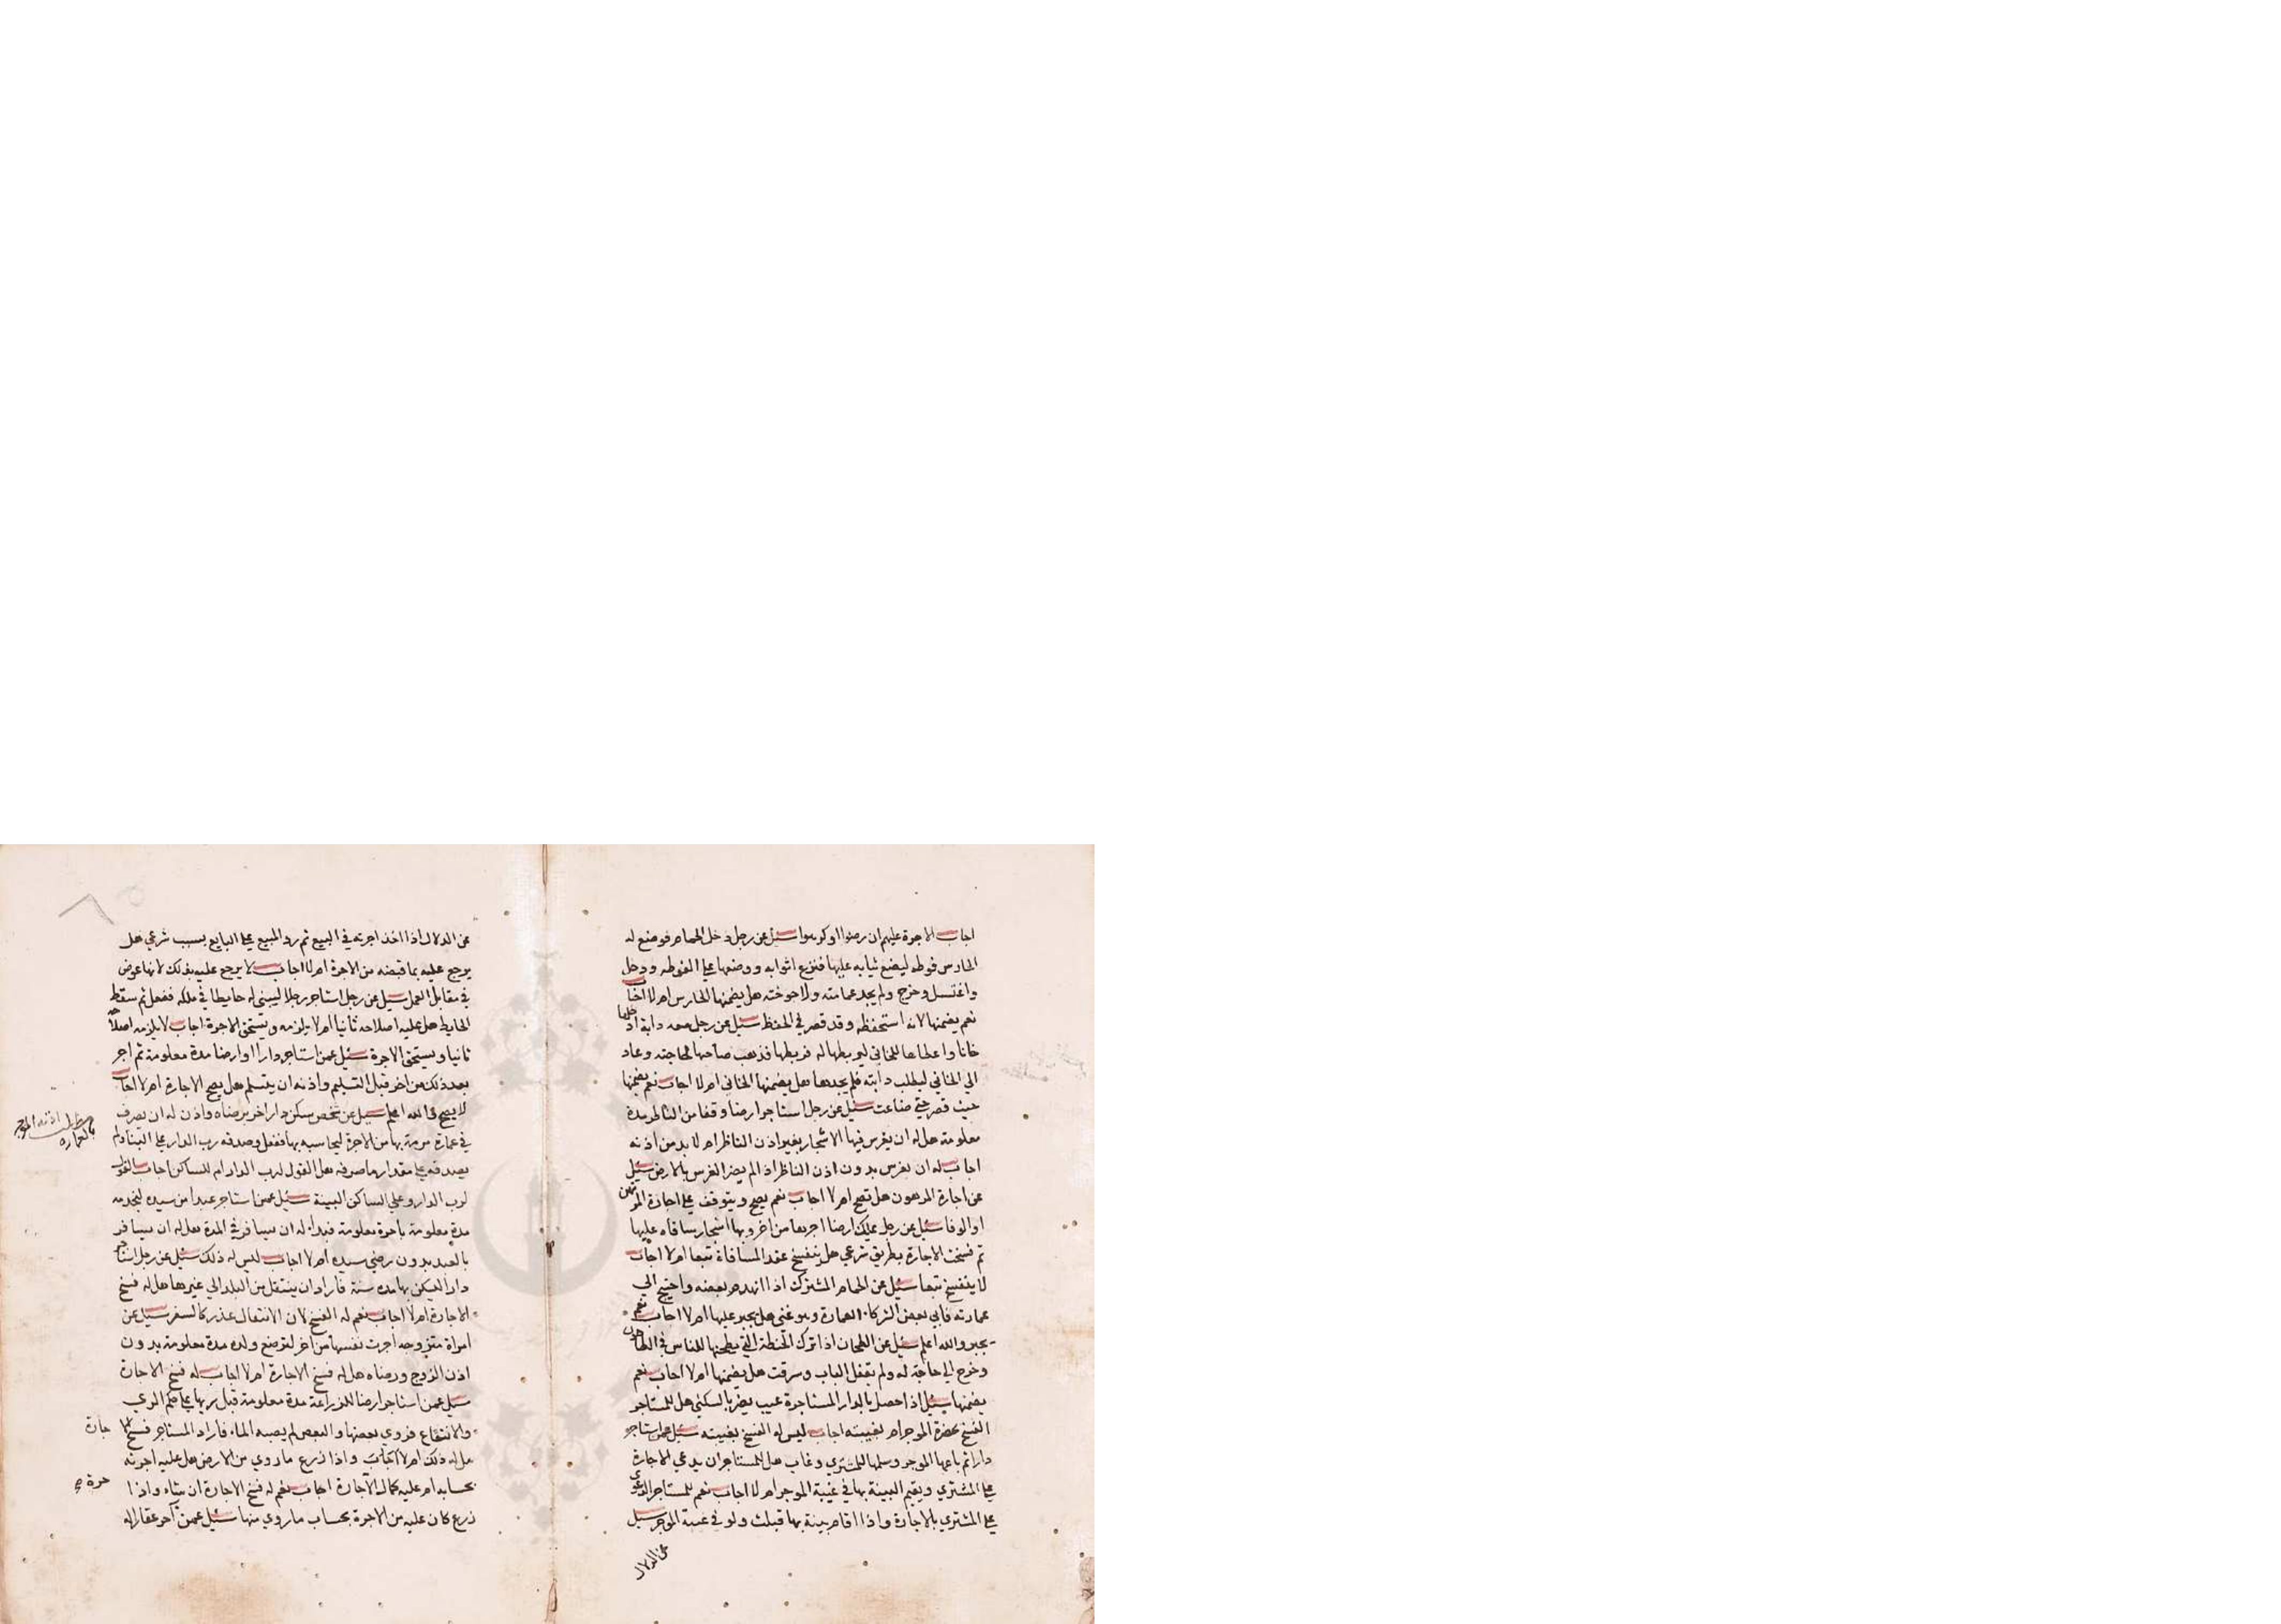 اجاب الاجرة عليهم ان رضوا او كرهوا سئل عن رجل دخل الحمام فوضع له
الحارس فوطه ليضع ثيابه عليها فنزع اثوابه ووضعها على الفوطه ودخل
واغتسل وخرج ولم يجد عمامته ولا جوخته هل يضمنها الحارس ام لا اجاب
نعم يضمنها لانه استحفظه وقد قصر في الحفظ سئل عن رجل معه دابة ادخلها
خانا واعطاها للخاني ليربطها له فربطها فذهب صاحبها لحاجته وعاد
الي الخاني ليطلب دابته فلم يجدها هل يضمنها الخاني ام لا اجاب نعم يضمنها
حيث قصر حتى ضاعت سئل عن رجل استاجر ارضا وقفا من الناظر مدة
معلومة هل له ان يغرس فيها الاشجار بغير اذن الناظر ام لا بد من اذنه
اجاب له ان يغرس بدون اذن الناظر اذا لم يضر الغرس بالارض سئل
عن اجارة المرهون هل تصح ام لا اجاب نعم يصح ويتوقف على اجازة المرتهن
او الوفا سئل عن رجل يملك ارضا اجرها من اخر وبها اشجار ساقاه عليها
ثم فسخت الاجارة بطريق شرعي هل ينفسخ عقد المساقاة تبعا ام لا اجاب
لا ينفسخ تبعا سئل عن الحمام المشترك اذا انهدم بعضه واحتيج الي
عمارته فابي بعض الشركاء العمارة وهو غني هل يجبر عليها ام لا اجاب نعم
يجبر والله اعلم سئل عن الطحان اذا ترك الحنطة التي يطحنها للناس في الطاحون
وخرج الي حاجة له ولم يقفل الباب وسرقت هل يضمنها ام لا اجاب نعم
يضمنها سئل اذا حصل بالدار المستاجرة عيب يضر بالسكني هل للمستاجر
الفسخ بحضرة الموجر ام بغيبته اجاب ليس له الفسخ بغيبته سئل عمن استاجر
دارا ثم باعها الموجر وسلمها للمشتري وغاب هل للمستاجر ان يدعي الاجارة
على المشتري ويقيم البينة بها في غيبة الموجر ام لا اجاب نعم للمستاجر الدعوي
على المشتري بالاجارة واذا اقام بينة بها قبلت ولو في غيبة الموجر سئل
عن الدلال
عن الدلال اذا اخذ اجرته في البيع ثم رد المبيع على البايع بسبب شرعي هل
يرجع عليه بما قبضه من الاجرة ام لا اجاب لا يرجع عليه بذلك لانها عوض
في مقابل العمل سئل عن رجل استاجر رجلا ليبني له حايطا في ملكه ففعل ثم سقط
الحايط هل عليه اصلاحه ثانيا ام لا يلزمه ويستحق الاجرة اجاب لا يلزمه اصلاحه
ثانيا ويستحق الاجرة سئل عمن استاجر دارا او ارضا مدة معلومة ثم اجر
بعد ذلك من اخر قبل التسليم واذنه ان يتسلم هل يصح الاجارة ام لا اجاب
لا يصح والله اعلم سئل عن شخص سكن دار اخر برضاه واذن له ان يصرف
في عمارة مرمة بها من الاجرة ليحاسبه بها ففعل وصدقه رب الدار على البنا ولم
يصدقه على مقدار ما صرفه هل القول لرب الدار ام للساكن اجاب القول
لرب الدار وعلي الساكن البينة سئل عمن استاجر عبدا من سيده لخدمه
مدة معلومة باجرة معلومة فبدا له ان يسافر في المدة هل له ان يسافر
بالعبد بدون رضي سيده ام لا اجاب ليس له ذلك سئل عن رجل استاجر
دارا ليسكن بها مدة سنة فاراد ان ينتقل من البلد الي غيرها هل له فسخ
الاجارة ام لا اجاب نعم له الفسخ لان الانتقال عذر كالسفر سئل عن
امراة متزوجه اجرت نفسها من اخر لترضع ولده مدة معلومة بدون
اذن الزوج ورضاه هل له فسخ الاجارة ام لا اجاب له فسخ الاجارة
سئل عمن استاجر ارضا للزراعة مدة معلومة قبل ريها على حكم الري
والانتفاع فروي بعضها والبعض لم يصبه الماء فاراد المستاجر فسخ الا جارة
هل له ذلك ام لا اجاب واذا زرع ما روي من الارض هل عليه اجرته
بحسابه ام عليه كمال الاجارة اجاب نعم له فسخ الاجارة ان شاء واذا
زرع كان عليه من الاجرة بحساب ما روي منها سئل عمن آجر عقارا له